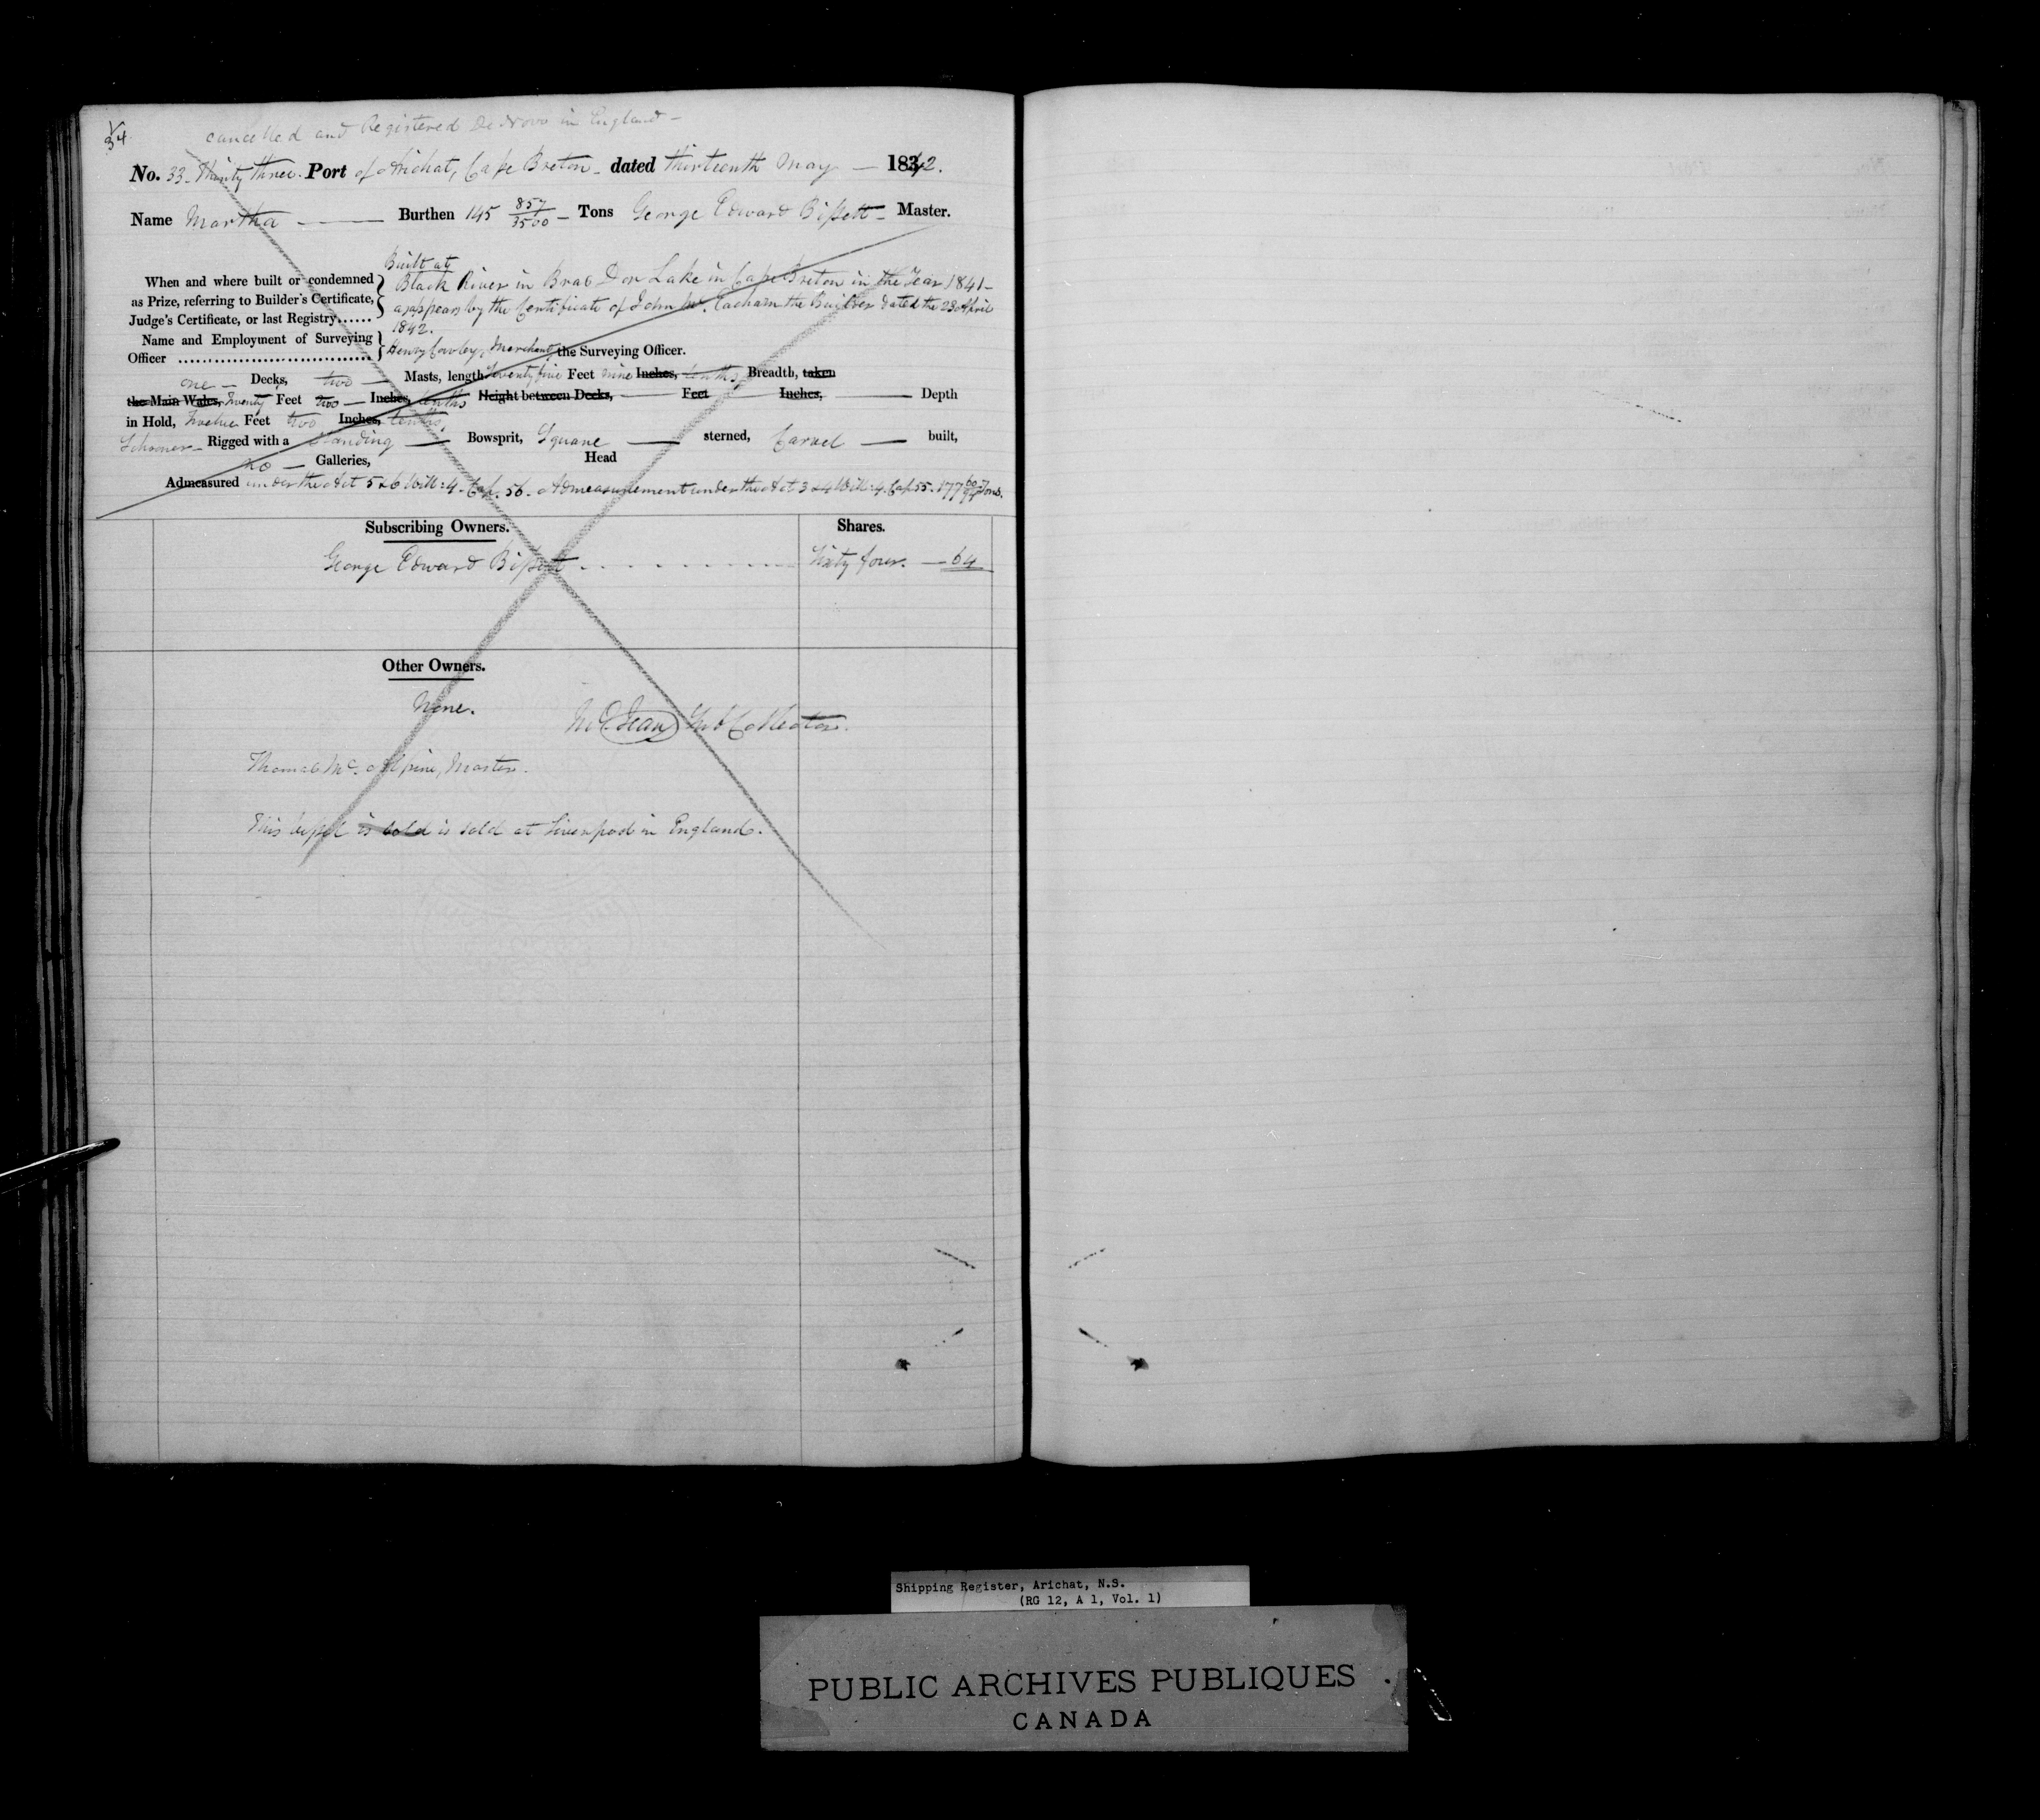 34
cancelled and Registered De Novo in England -
No. 33 - Thirty three. Port of Arichat, Cape Breton - dated thirteenth May — 1842.
Name Martha — Burthen 145 857/3500 - Tons George Edward Bissett - Master.
Built at
When and where built or condemned as Prize, referring to Builder's Certificate, Judge's Certificate, or last Registry......
Black River in Bras Dor Lake in Cape Breton in the Year 1841 -
appears by the Certificate of John Mc. Eacharn the Builder dated the 23 April
1842.
Name and Employment of Surveying Officer
Henry Cowley, Merchant, the Surveying Officer.
one - Decks, two - Masts, length Seventy five Feet nine Inches, tenths, Breadth, taken
the Main Wales, Twenty Feet two - Inches, tenths Height between Decks, — Feet Inches, — Depth
in Hold, Twelve Feet two Inches, tenths,
Schooner - Rigged with a Standing — Bowsprit, Square — sterned, Carvel — built,
no - Galleries, Head
Admeasured under the Act 5 & 6 Will: 4. Cap. 56. Admeasurement under the Act 3 & 4 Will: 4. Cap 55. 177 Tons.
Subscribing Owners. Shares.
George Edward Bissett - - - - - - - - Sixty four. — 64
Other Owners.
None.
Collector.
Thomas Mc. Alpine, Master.
This vessel is sold is sold at Liverpool in England.
Shipping Register, Arichat, N.S.
(RG 12, A 1, Vol. 1)
PUBLIC ARCHIVES PUBLIQUES
CANADA